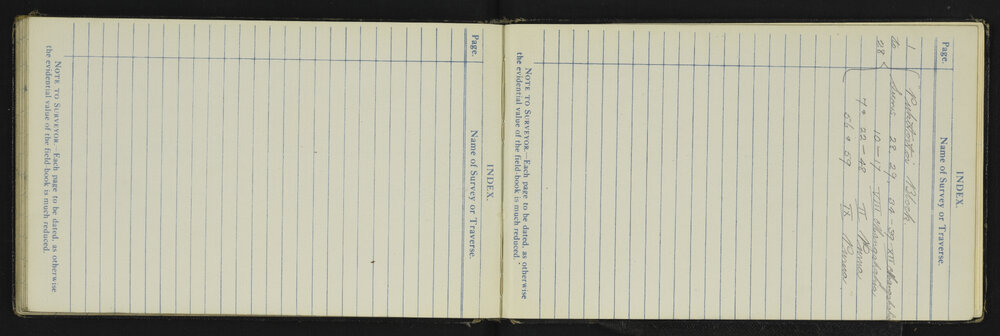 INDEX.
Page. Name of Survey or Traverse.
1 Block
to Secns. 28. 29. 34 – 39 VII
28 10 – 17 VIII
7 & 22 – 48 II
56 & 59 IX
NOTE TO SURVEYOR.—Each page to be dated, as otherwise
the evidential value of the field-book is much reduced.
INDEX.
Page. Name of Survey or Traverse.
NOTE TO SURVEYOR.—Each page to be dated, as otherwise
the evidential value of the field-book is much reduced.